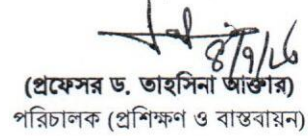 ৪/৭/২৬
(প্রফেসর ড. তাহসিনা আক্তার)
পরিচালক (প্রশিক্ষণ ও বাস্তবায়ন)